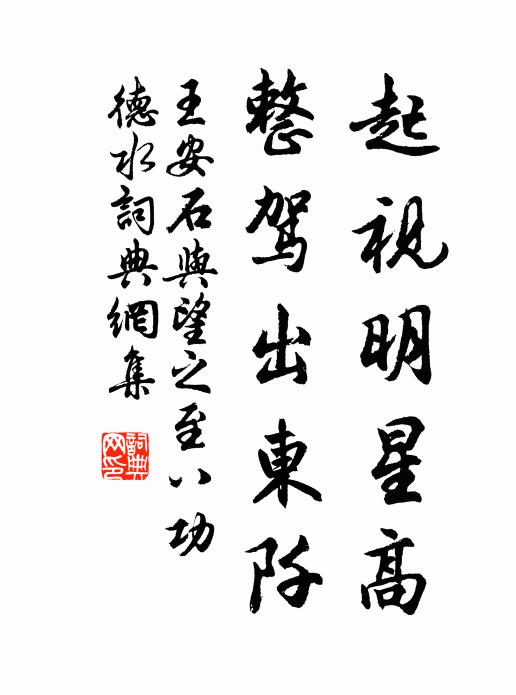 起視明星高
整駕出東阡
王安石與望之至八功
德水詞典網集
詞典
网印